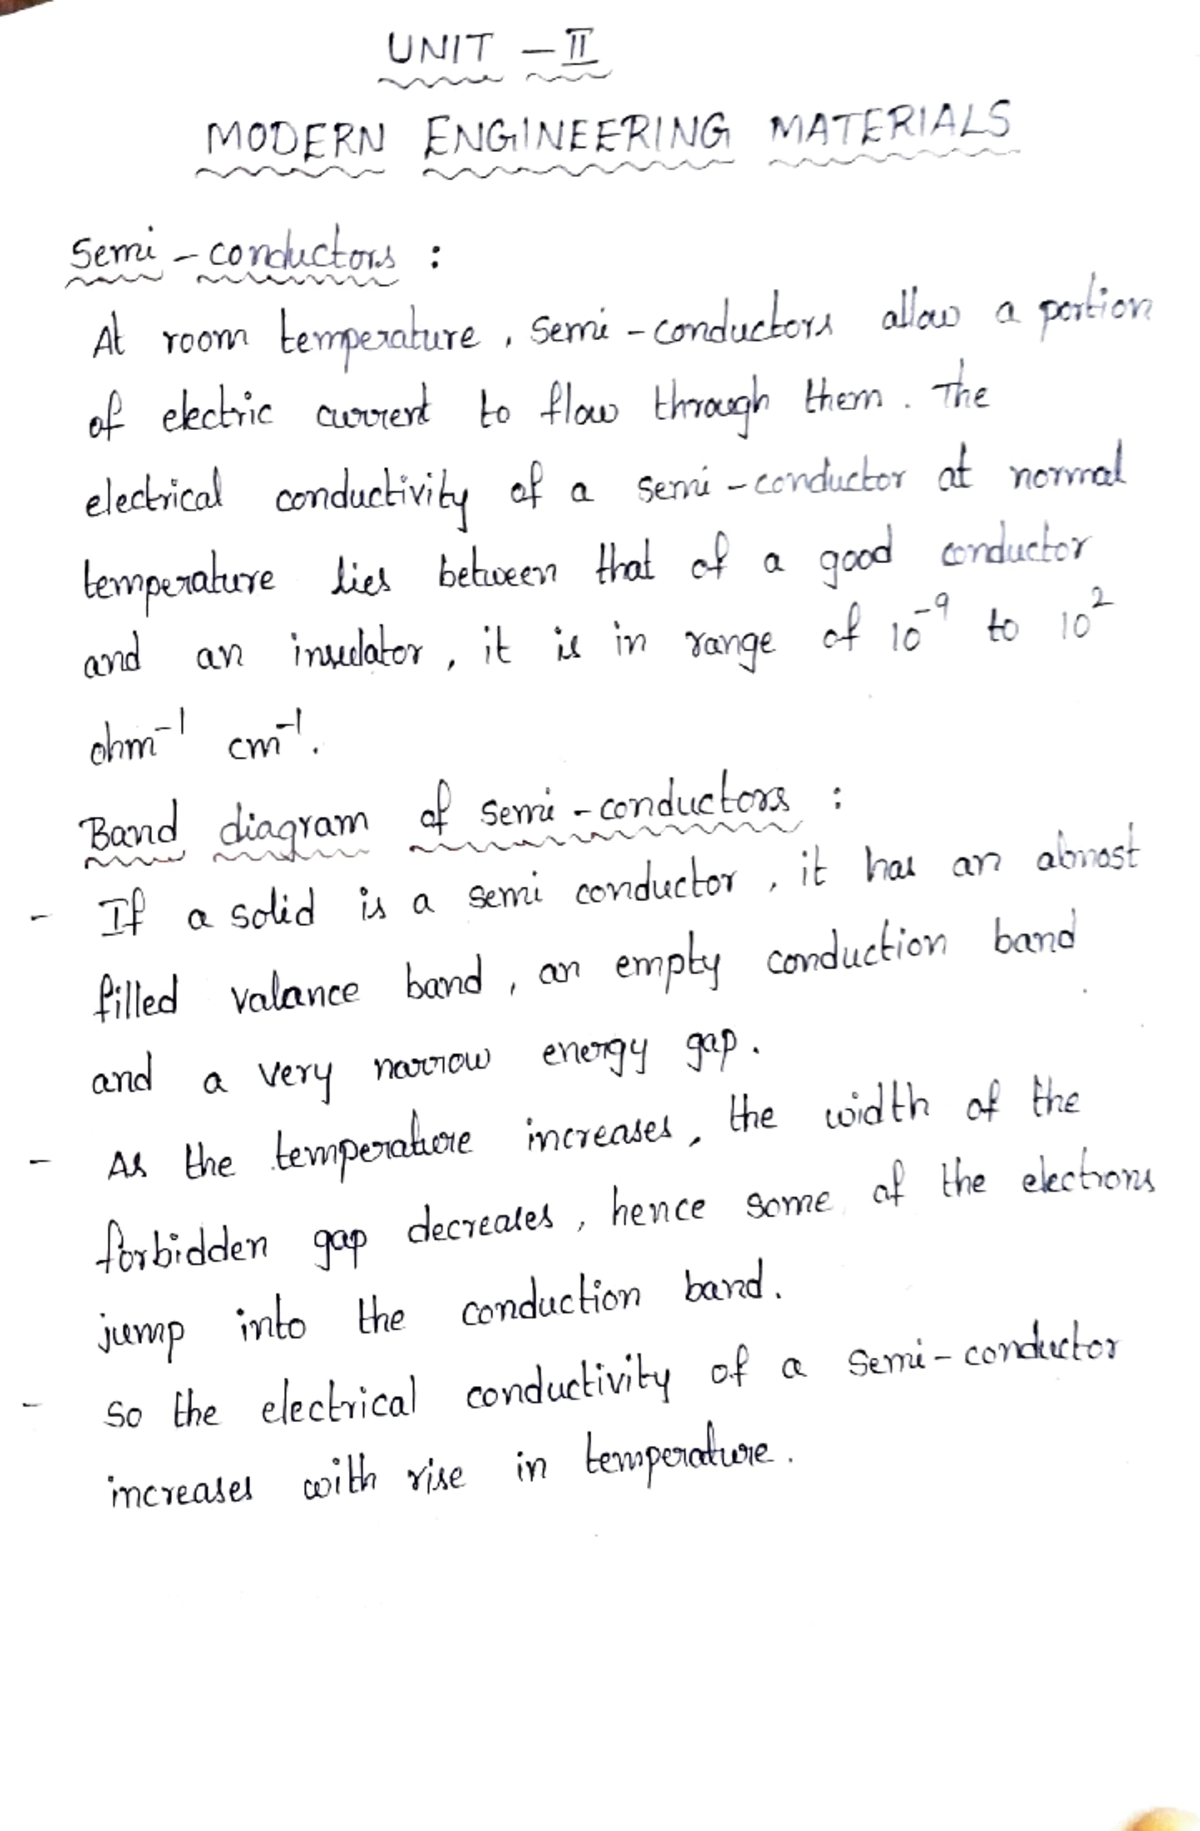 UNIT - II
MODERN ENGINEERING MATERIALS
Semi - conductors :
At room temperature, Semi - conductors allow a portion
of electric current to flow through them. The
electrical conductivity of a semi - conductor at normal
temperature lies between that of a good conductor
and an insulator, it is in range of 10⁻⁹ to 10²
ohm⁻¹ cm⁻¹.
Band diagram of semi - conductors :
- If a solid is a semi conductor, it has an almost
filled valance band, an empty conduction band
and a very narrow energy gap.
- As the temperature increases, the width of the
forbidden gap decreases, hence some of the electrons
jump into the conduction band.
- So the electrical conductivity of a semi - conductor
increases with rise in temperature.